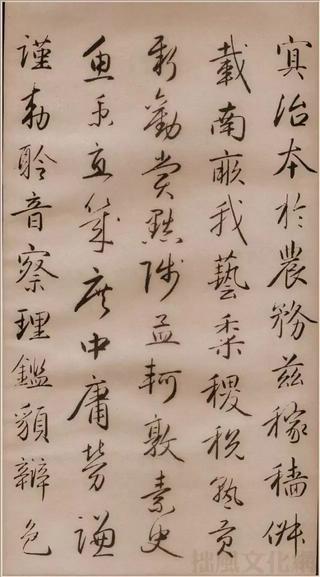 冥治本於農務茲稼穡俶
載南畝我藝黍稷稅熟貢
新勸賞黜陟孟軻敦素史
魚秉直幾庶中庸勞謙
謹勅聆音察理鑑貌辯色
拙風文化網